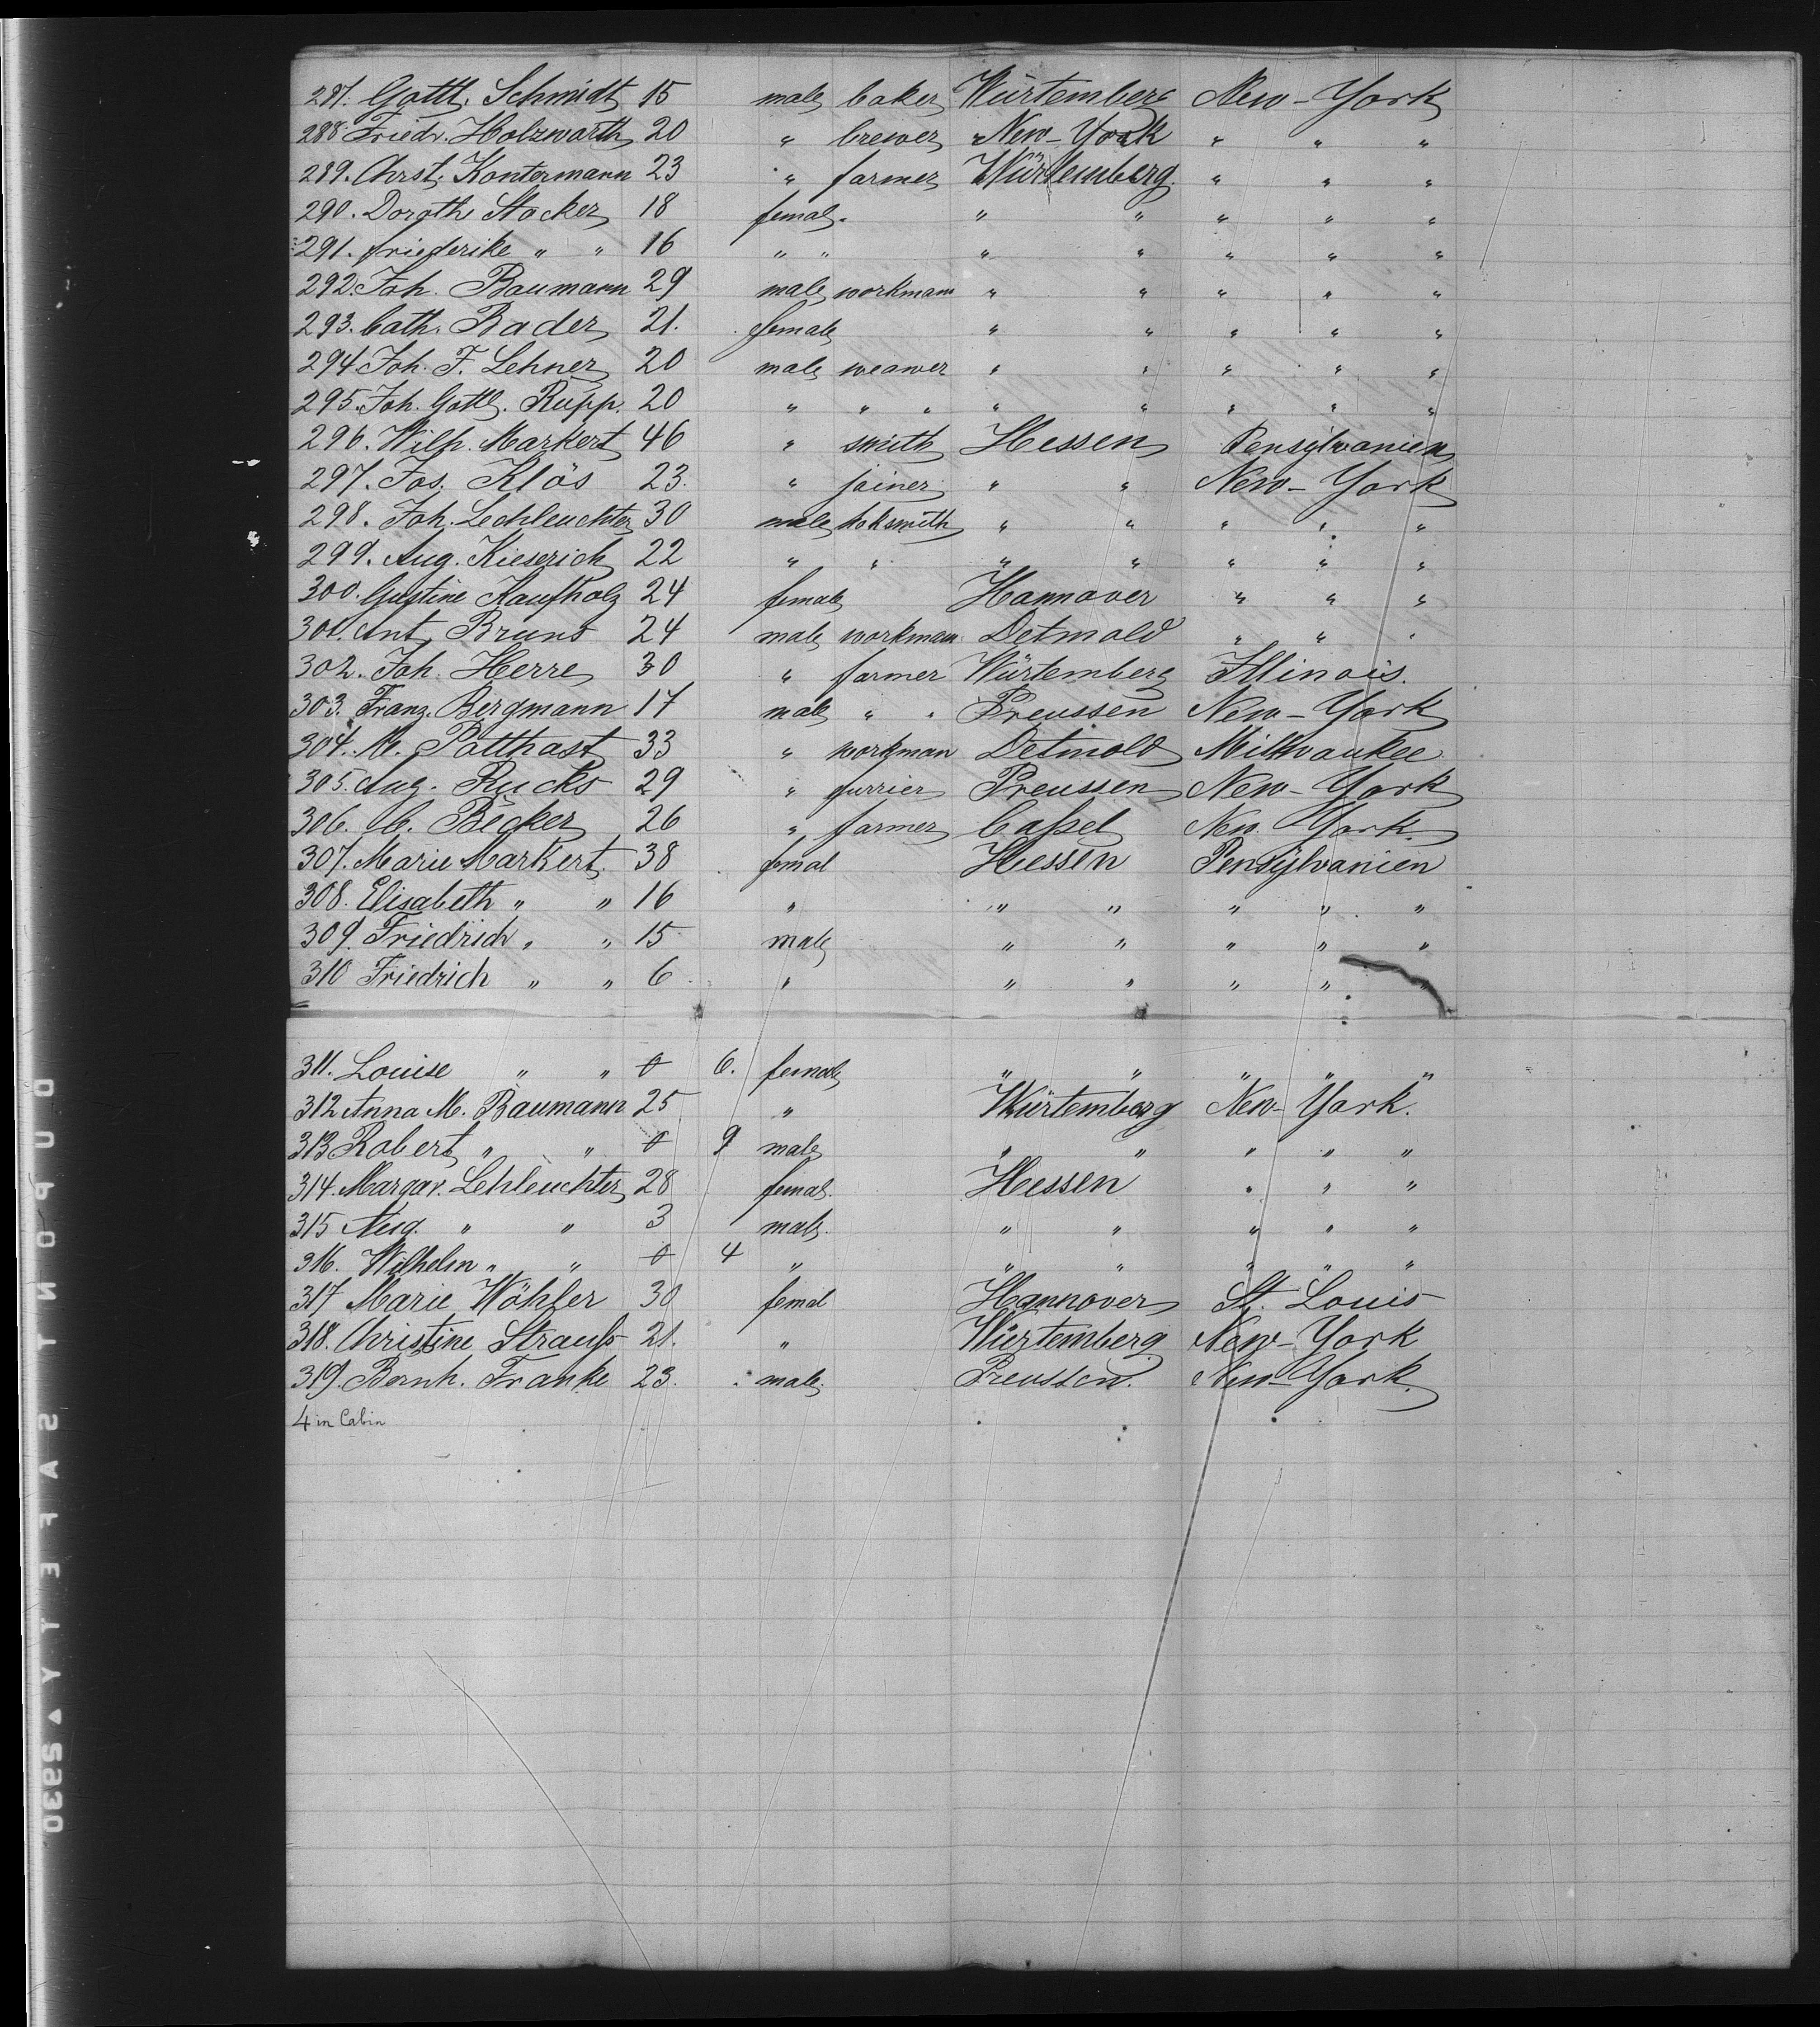 287. Gottl. Schmidt 15 male baker Würtemberg New-York
288. Friedr. Holzwarth 20 " brewer New-York " " "
289. Chrst. Kontermann 23 " farmer Würtemberg. " " "
290. Dorothe Stocker 18 femal. " " " " "
291. Friederike " " 16 " " " " " " "
292. Joh. Baumann 29 male workman " " " " "
293. Cath. Bader 21. female " " " " "
294. Joh. F. Lehner 20 male weawer " " " " "
295. Joh. Gottl. Rupp. 20 " " " " " " " "
296. Wilh. Markert 46 " smith Hessen Pensylvanien
297. Jos. Klös 23. " joiner " " New-York
298. Joh. Lechleuchter 30 male loksmith " " " " "
299. Aug. Kieserich 22 " " " " " " "
300. Gustine Kaufholz 24 female Hannover " " "
301. Ant. Bruns 24 male workman Detmold " " "
302. Joh. Herre 30 " farmer Würtemberg Illinois.
303. Franz. Bergmann 17 male " " Preussen New-York
304. W. Potthast 33 " workman Detmold Milkwaukee
305. Aug. Rucks 29 " furrier Preussen New-York
306. C. Becker 26 " farmer Caßel New York
307. Marie Markert. 38 femal Hessen Pensylvanien
308. Elisabeth " " 16 " " " " " "
309. Friedrich " " 15 male " " " " "
310 Friedrich " " 6 " " " " " "
311. Louise " " 0 6. female " " " " "
312 Anna M. Baumann 25 " Würtemberg New-York.
313 Robert " " 0 9 male " " " " "
314. Margar. Lehleuchter 28 femal. Hessen " " "
315 Aug. " " 3 male. " " " " "
316. Wilhelm " " 0 4 " " " " " "
317 Marie Wöhler 30 femal Hannover St. Louis
318. Christine Strauß 21. " Würtemberg New-York
319. Bernh. Franke 23. male. Preussen. New-York.
4 in Cabin